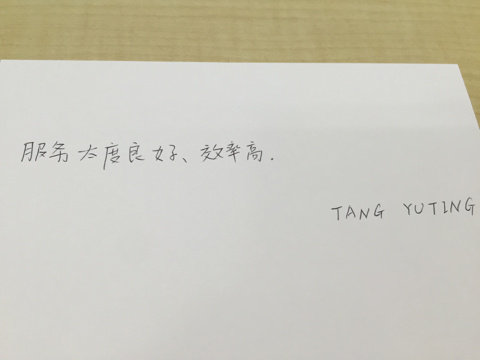 服务太度良好、效率高.
TANG YUTING